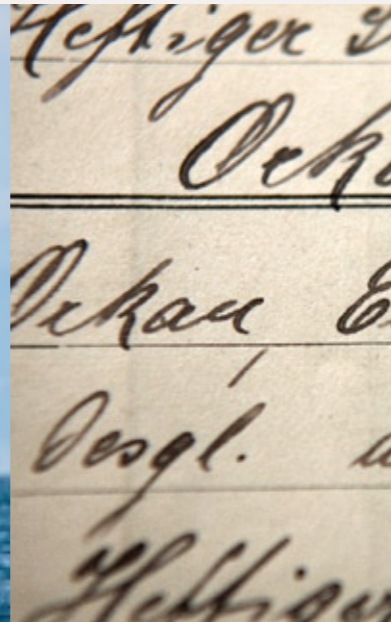 Heftiger
Orka
Orkan,
Desgl.
Heftiger